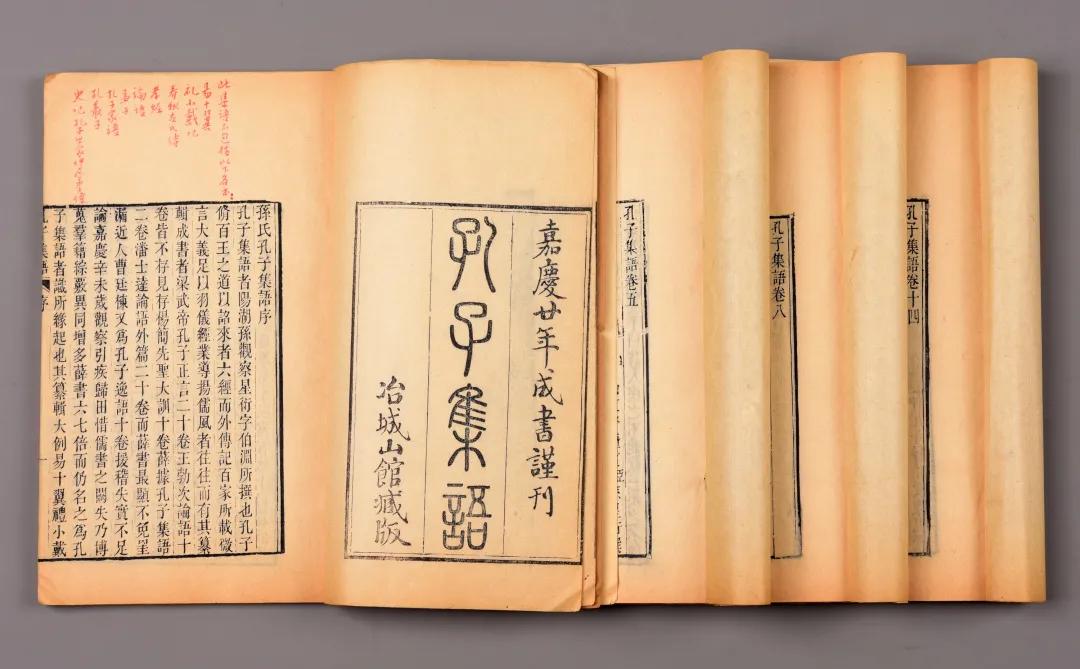 嘉慶廿年成書謹刊
孔子集語
冶城山館藏版
此集語不包括以下各書：
易十翼
礼小戴记
春秋左氏傳
孝經
論語
孟子
孔子家語
孔叢子
史记孔子世家
孫氏孔子集語序
孔子集語者陽湖孫觀察星衍字伯淵所撰也孔子
脩百王之道以詒來者六經而外傳記百家所載微
言大義足以羽儀經業導揚儒風者往往而有其纂
輯成書者梁武帝孔子正言二十卷王勃次論語十
卷皆不存見存楊簡先聖大訓十卷薛據孔子集語
二卷潘士達論語外篇二十卷而薛書最顯不免罣
漏近人曹廷棟又爲孔子逸語十卷援稽失實不足
論嘉慶辛未歲觀察引疾歸田惜儒書之闕失乃博
蒐羣籍綜覈異同增多薛書六七倍而仍名之爲孔
子集語者識所緣起也其纂輯大例易十翼禮小戴
孔子集語 序
孔子集語卷五
孔子集語卷八
孔子集語卷十四